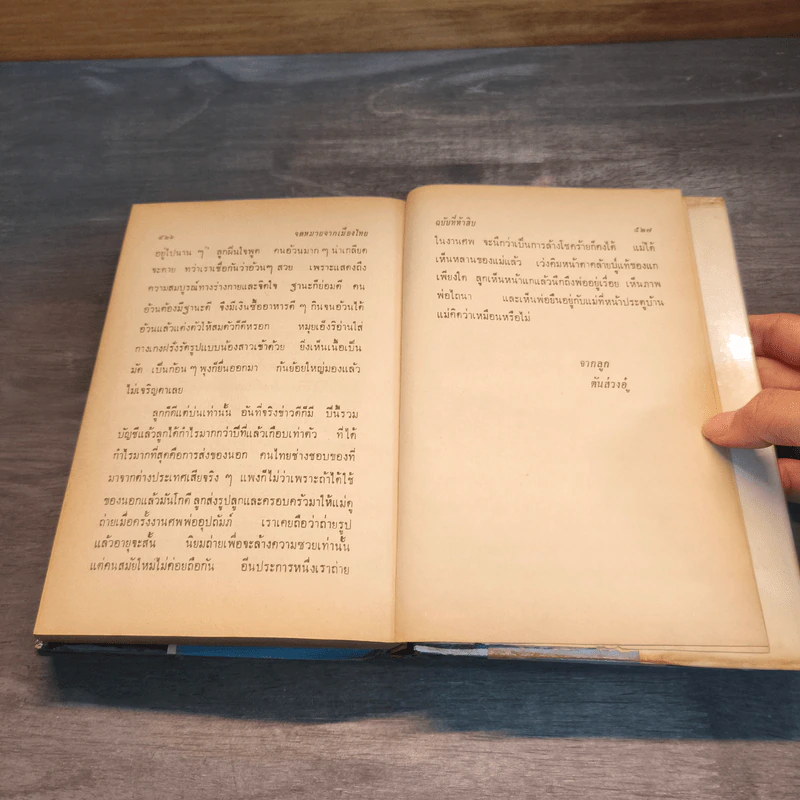 ๕๒๖ จดหมายจากเมืองไทย
อยู่ไปนาน ๆ" ลูกฝืนใจพูด คนอ้วนมาก ๆ น่าเกลียด
จะตาย ทว่าเราเชื่อกันว่าอ้วนๆ สวย เพราะแสดงถึง
ความสมบูรณ์ทางร่างกายและจิตใจ ฐานะก็ย่อมดี คน
อ้วนต้องมีฐานะดี จึงมีเงินซื้ออาหารดี ๆ กินจนอ้วนได้
อ้วนแล้วแต่งตัวให้สมตัวก็ดีหรอก หมุยเอ็งรีอ่านใส่
กางเกงฝรั่งรัดรูปแบบน้องสาวเข้าด้วย ยิ่งเห็นเนื้อเป็น
มัด เป็นก้อน ๆ พุงก็ยื่นออกมา ก้นย้อยใหญ่มองแล้ว
ไม่เจริญตาเลย
ลูกก็ดีแต่บ่นเท่านั้น อันที่จริงข่าวดีก็มี ปีนี้รวม
บัญชีแล้วลูกได้กำไรมากกว่าปีที่แล้วเกือบเท่าตัว ที่ได้
กำไรมากที่สุดคือการส่งของนอก คนไทยช่างชอบของที่
มาจากต่างประเทศเสียจริง ๆ แพงก็ไม่ว่าเพราะถ้าได้ใช้
ของนอกแล้วมันโก้ดี ลูกส่งรูปลูกและครอบครัวมาให้แม่ดู
ถ่ายเมื่อครั้งงานศพพ่ออุปถัมภ์ เราเคยถือว่าถ่ายรูป
แล้วอายุจะสั้น นิยมถ่ายเพื่อจะล้างความซวยเท่านั้น
แต่คนสมัยใหม่ไม่ค่อยถือกัน อีนประการหนึ่งเราถ่าย
ฉบับที่ห้าสิบ ๕๒๗
ในงานศพ จะนึกว่าเป็นการล้างโชคร้ายก็คงได้ แม่ได้
เห็นหลานของแม่แล้ว เว่งคิมหน้าตาคล้ายปู่แท้ของแก
เพียงใด ลูกเห็นหน้าแกแล้วนึกถึงพ่ออยู่เรื่อย เห็นภาพ
พ่อไถนา และเห็นพ่อยืนอยู่กับแม่ที่หน้าประตูบ้าน
แม่คิดว่าเหมือนหรือไม่
จากลูก
ตันส่วงอู๋